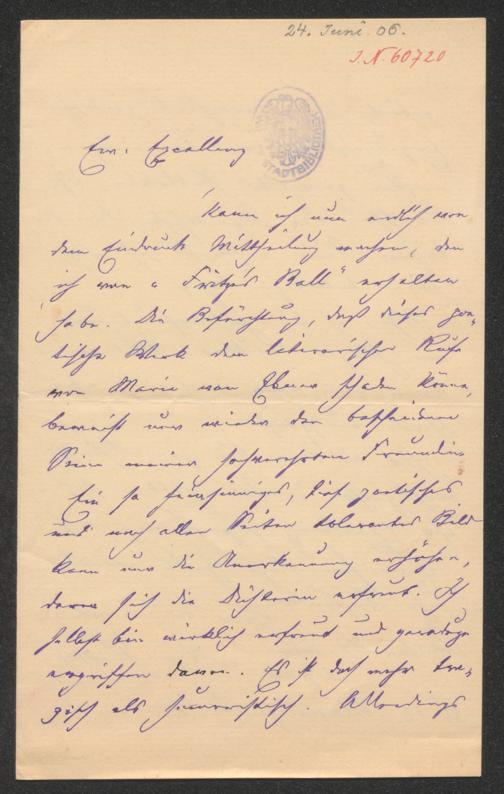 24. Juni 06.
I. N. 60720
STADTBIBLIOTHEK
Ew. Excellenz
Kann ich nun endlich von
dem Eindruck Mittheilung machen, den
ich von „Fritzi's Ball" erhalten
habe. Die Befürchtung, daß dieses poe-
tische Werk dem literarischen Rufe
von Marie von Ebner schaden könne,
beweist nur wieder den bescheidenen
Sinn meiner hochverehrten Freundin.
Ein so feinsinniges, tief poetisches
und nach allen Seiten tolerantes Bild
kann nur die Anerkennung erhöhen,
deren sich die Dichterin erfreut. Ich
selbst bin wirklich erfreut und geradezu
ergriffen davon. Es ist doch mehr tra-
gisch als humoristisch. Allerdings